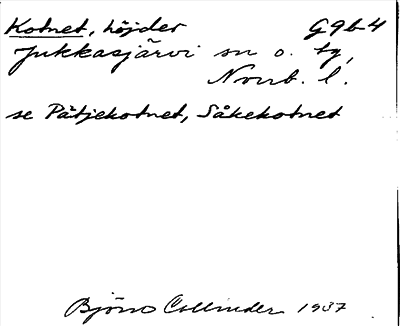 Kotnet, höjder G9b4
Jukkasjärvi sn o. tg,
Norrb. l.
se Påtjekotnet, Såkekotnet
Björn Collinder 1937